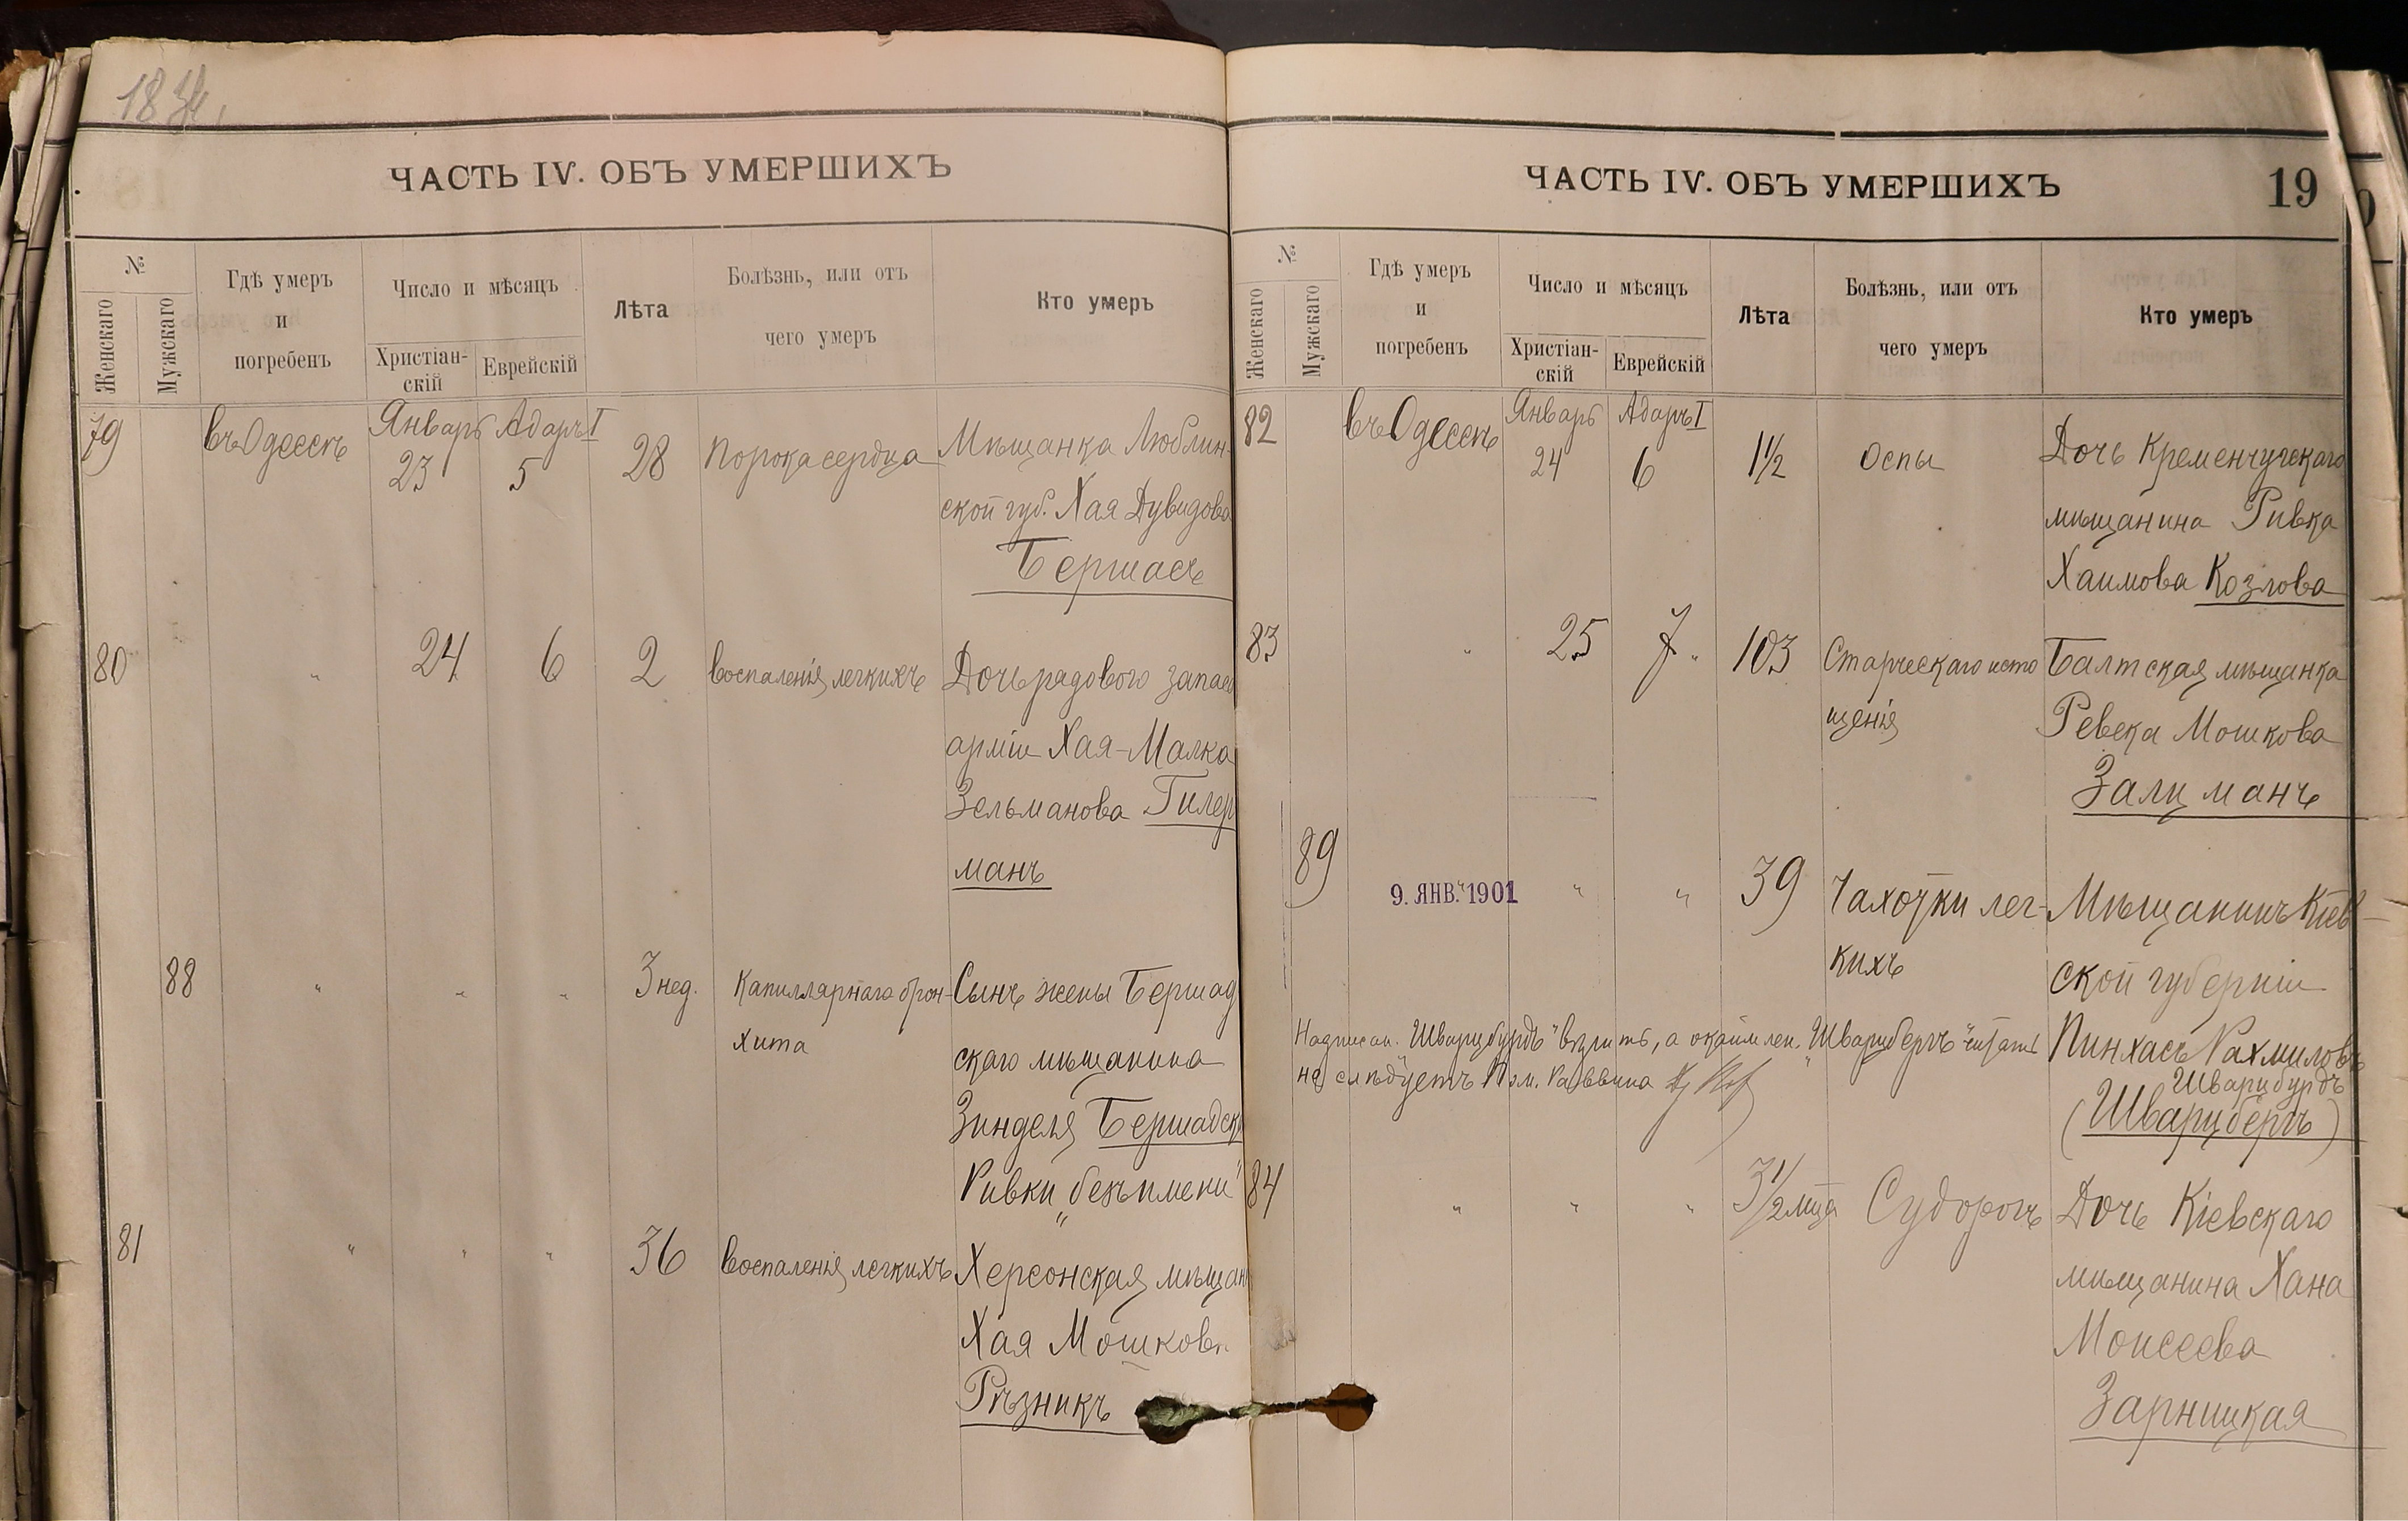 ЧАСТЬ IV. ОБЪ УМЕРШИХЪ
№
Женскаго
Мужскаго
Гдѣ умеръ
и
погребенъ
Число и мѣсяцъ
Христіан-
скій
Еврейскій
Лѣта
Болѣзнь, или отъ
чего умеръ
Кто умеръ
79
въ Одессѣ
Январь
23
Адаръ I
5
28
Порока сердца
Мѣщанка Люблин-
ской губ. Хая Дувидова
Бершасъ
80
"
24
6
2
Воспаленія легкихъ
Дочь рядового запаса
арміи Хая-Малка
Зельманова Гилер
манъ
88
"
"
"
3 нед.
Капиллярнаго брон-
хита
Сынъ жены Бершад
скаго мѣщанина
Зинделя Бершадск
Ривки „безъ имени"
81
"
"
"
36
Воспаленія легкихъ
Херсонская мѣщан
Хая Мошкова
Рѣзникъ
ЧАСТЬ IV. ОБЪ УМЕРШИХЪ
19
№
Женскаго
Мужскаго
Гдѣ умеръ
и
погребенъ
Число и мѣсяцъ
Христіан-
скій
Еврейскій
Лѣта
Болѣзнь, или отъ
чего умеръ
Кто умеръ
82
въ Одессѣ
Январь
24
Адаръ I
6
1 1/2
Оспы
Дочь Кременчугскаго
мѣщанина Ривка
Хаимова Козлова
83
"
25
7
103
Старческаго исто
щенія
Балтская мѣщанка
Ревека Мошкова
Залцманъ
89
9. ЯНВ. 1901
"
"
"
39
Чахотки лег-
кихъ
Мѣщанинъ Кіев-
ской губерніи
Пинхасъ Рахмиловъ
Шварцбурдъ
(Шварцбергъ)
Надписан. „Шварцбурдъ" вѣрить, а окаймлен. „Шварцбергъ" читать
не слѣдуетъ Пом. Раввина
84
"
"
"
3 1/2 мца
Судорогъ
Дочь Кіевскаго
мѣщанина Хана
Моисеева
Зарницкая